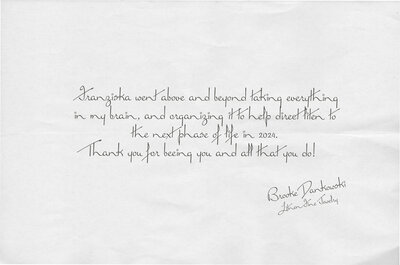 Franziska went above and beyond taking everything
in my brain, and organizing it to help direct Liten to
the next phase of life in 2024.
Thank you for beeing you and all that you do!
Brooke Dankowski
Fine